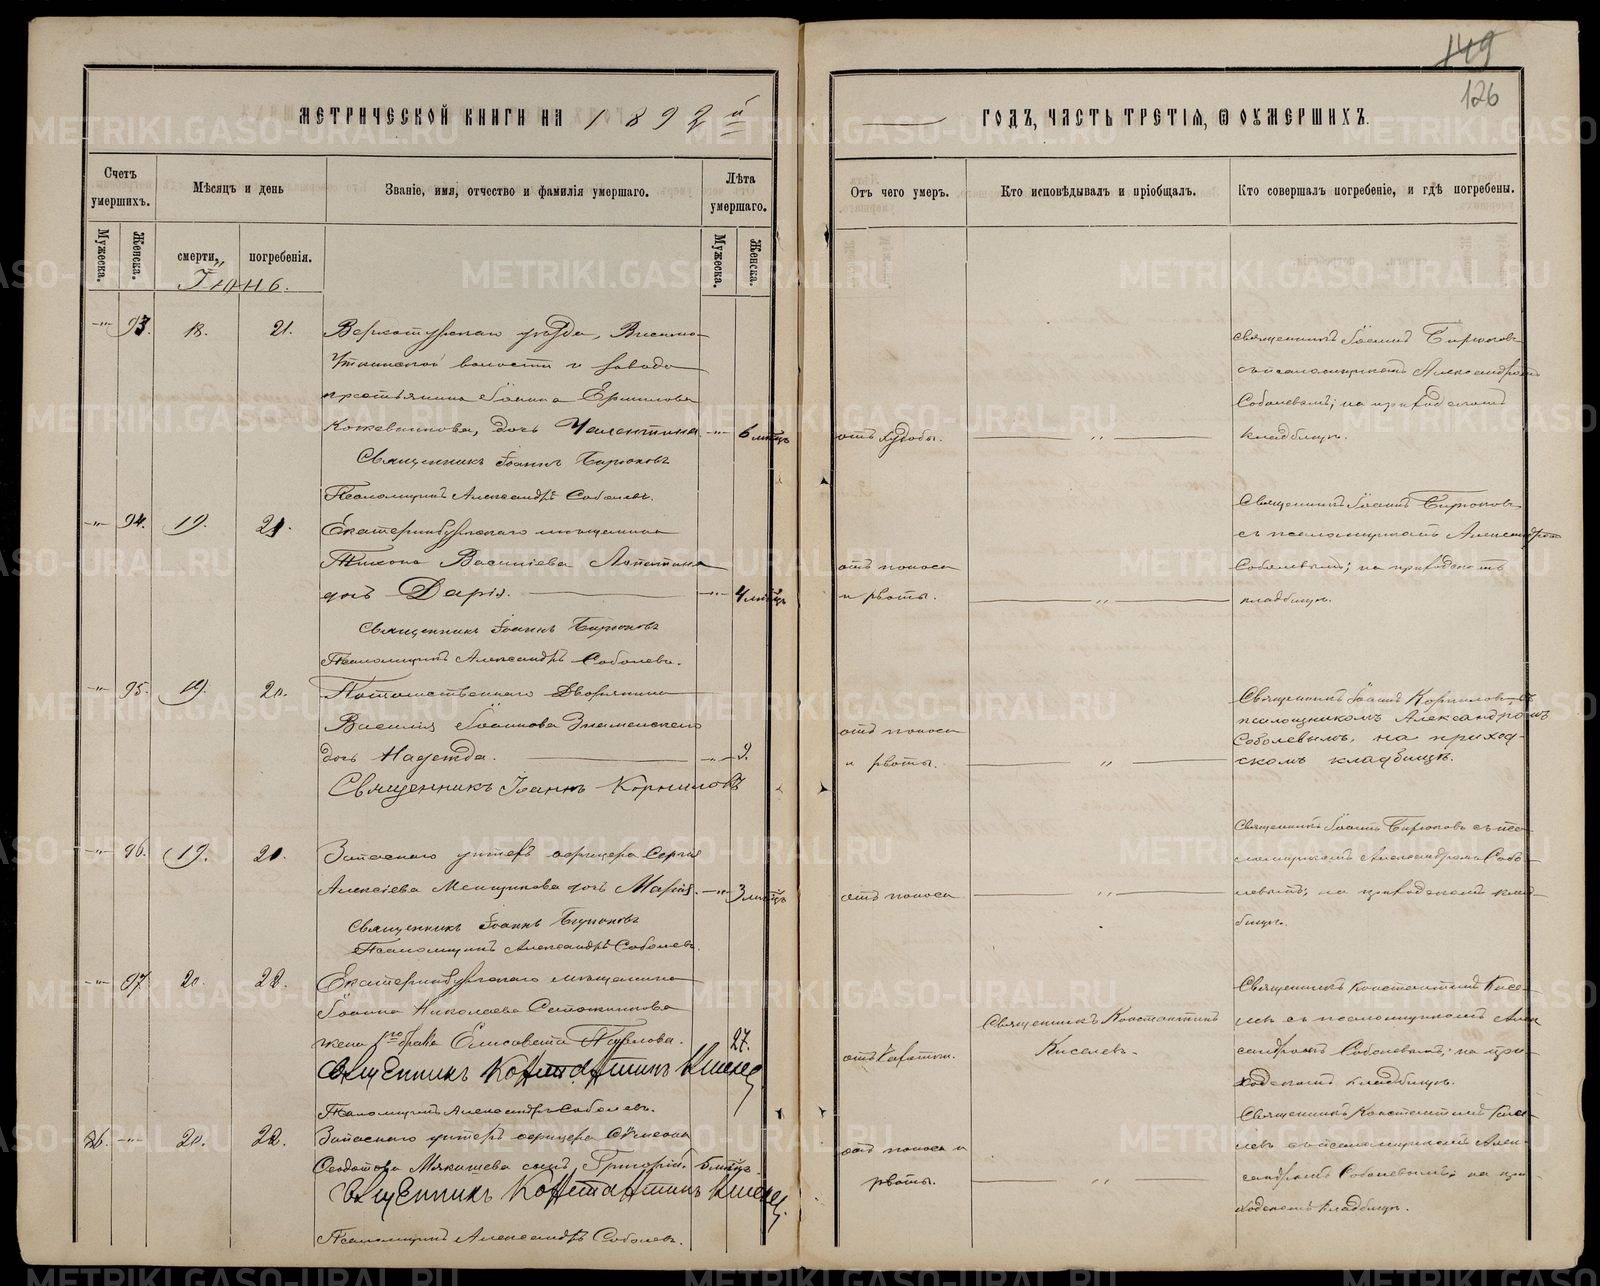 149
126
МЕТРИЧЕСКОЙ КНИГИ НА 1892й
ГОДЪ, ЧАСТЬ ТРЕТІЯ, Ѿ ОУМЕРШИХЪ.
Счетъ умершихъ.
Мѣсяцъ и день
Званіе, имя, отчество и фамилія умершаго.
Лѣта умершаго.
Отъ чего умеръ.
Кто исповѣдывалъ и пріобщалъ.
Кто совершалъ погребеніе, и гдѣ погребены.
Мужеска.
Женска.
смерти,
погребенія.
Мужеска.
Женска.
Іюнь.
-"- 93. 18. 21.
Верхотурскаго уѣзда, Висимо-
Уткинской волости и завода
крестьянина Іоанна Ермилова
Кожевникова, дочь -"- 6 мѣсяц
Священникъ Іоаннъ Бирюковъ
Псаломщикъ Александръ Соболевъ.
отъ худобы.
Священникъ Іоаннъ Бирюковъ
съ псаломщикомъ Александромъ
Соболевымъ; на приходскомъ
кладбищѣ.
-"- 94. 19. 21.
Екатеринбургскаго мѣщанина
Тихона Васильева Лопатина
дочь Дарія. -"- 4 мѣсяц
Священникъ Іоаннъ Бирюковъ
Псаломщикъ Александръ Соболевъ.
отъ поноса
и рвоты.
Священникъ Іоаннъ Бирюковъ
съ псаломщикомъ Александром
Соболевымъ; на приходскомъ
кладбищѣ.
-"- 95. 19. 21.
Потомственнаго Дворянина
Василія Іоаннова Знаменскаго
дочь Надежда. -"- 2.
Священникъ Іоаннъ Корниловъ
отъ поноса
и рвоты.
Священникъ Іоаннъ Корниловъ съ
псаломщикомъ Александромъ
Соболевымъ, на приход-
скомъ кладбищѣ.
-"- 96. 19. 21.
Запаснаго унтеръ офицера Сергія
Алексіева Менщикова дочь Марія. -"- 3 мѣсяц
Священникъ Іоаннъ Бирюковъ
Псаломщикъ Александръ Соболевъ.
отъ поноса
Священникъ Іоаннъ Бирюковъ съ пса-
ломщикомъ Александромъ Собо-
левымъ; на приходскомъ клад-
бищѣ.
-"- 97 20. 22.
Екатеринбургскаго мѣщанина
Іоанна Николаева Сапожникова
жена 1го брака Елисавета Павлова. 27.
Священникъ Константинъ Киселев
Псаломщикъ Александръ Соболевъ.
Священникъ Константинъ
Киселевъ.
Священникъ Константинъ Кисе-
левъ съ псаломщикомъ Алек
сандромъ Соболевымъ; на при-
ходскомъ кладбищѣ.
86. -"- 20. 22.
Запаснаго унтеръ офицера Сѵмеона
Ѳеодотова Мякишева сынъ Григорій. 6 мѣсяц.
Священникъ Константинъ Киселев.
Псаломщикъ Александръ Соболевъ.
отъ поноса и
рвоты.
Священникъ Константинъ Кисе-
левъ съ псаломщикомъ Алек-
сандромъ Соболевымъ; на при-
ходскомъ кладбищѣ.